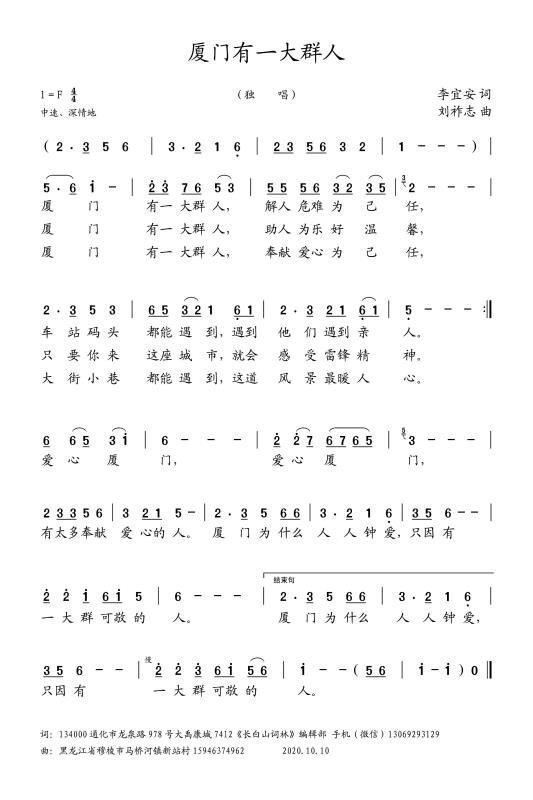 厦门有一大群人
1=F 4/4 （独 唱） 李宜安 词
中速、深情地 刘祚志 曲
( 2 · 3 5 6 | 3 · 2 1 6 | 2 3 5 6 3 2 | 1 - - - ) |
5 · 6 1 - | 2 3 7 6 5 3 | 5 5 5 6 3 2 3 5 | 3 2 - - - |
厦 门 有一 大群 人， 解人 危难 为 己 任，
厦 门 有一 大群 人， 助人 为乐 好 温 馨，
厦 门 有一 大群 人， 奉献 爱心 为 己 任，
2 · 3 5 3 | 6 5 3 2 1 6 1 | 2 · 3 2 1 6 1 | 5 - - - :||
车 站 码 头 都能 遇 到，遇到 他 们 遇到 亲 人。
只 要 你 来 这座 城 市，就会 感 受 雷锋 精 神。
大 街 小 巷 都能 遇 到，这道 风 景 最暖 人 心。
6 6 5 3 1 | 6 - - - | 2 2 7 6 7 6 5 | 5 3 - - - |
爱 心 厦 门， 爱 心 厦 门，
2 3 3 5 6 | 3 2 1 5 - | 2 · 3 5 6 6 | 3 · 2 1 6 | 3 5 6 - - |
有太多奉献 爱 心的 人。 厦 门 为 什么 人 人 钟 爱，只因 有
结束句
2 2 1 6 1 5 | 6 - - - | 2 · 3 5 6 6 | 3 · 2 1 6 |
一 大 群 可敬 的 人。 厦 门 为什么 人 人 钟 爱，
慢
3 5 6 - - | 2 2 3 6 1 5 6 | 1 - - ( 5 6 | 1 - 1 ) 0 ||
只因 有 一 大 群 可敬 的 人。
词：134000 通化市龙泉路 978 号大禹康城 7412《长白山词林》编辑部 手机（微信）13069293129
曲：黑龙江省穆棱市马桥河镇新站村 15946374962 2020.10.10